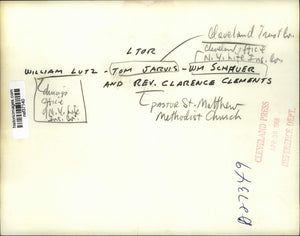 Cleveland Trust Co.
LTOR
Cleveland office
N.Y. Life
Ins. Co.
WILLIAM LUTZ - TOM JARVIS - WM SCHAUER
AND REV. CLARENCE CLEMENTS
office
N.Y. Life
Ins. Co.
pastor St. Matthew
Methodist Church
CLEVELAND PRESS
APR 1968
REFERENCE DEPT.